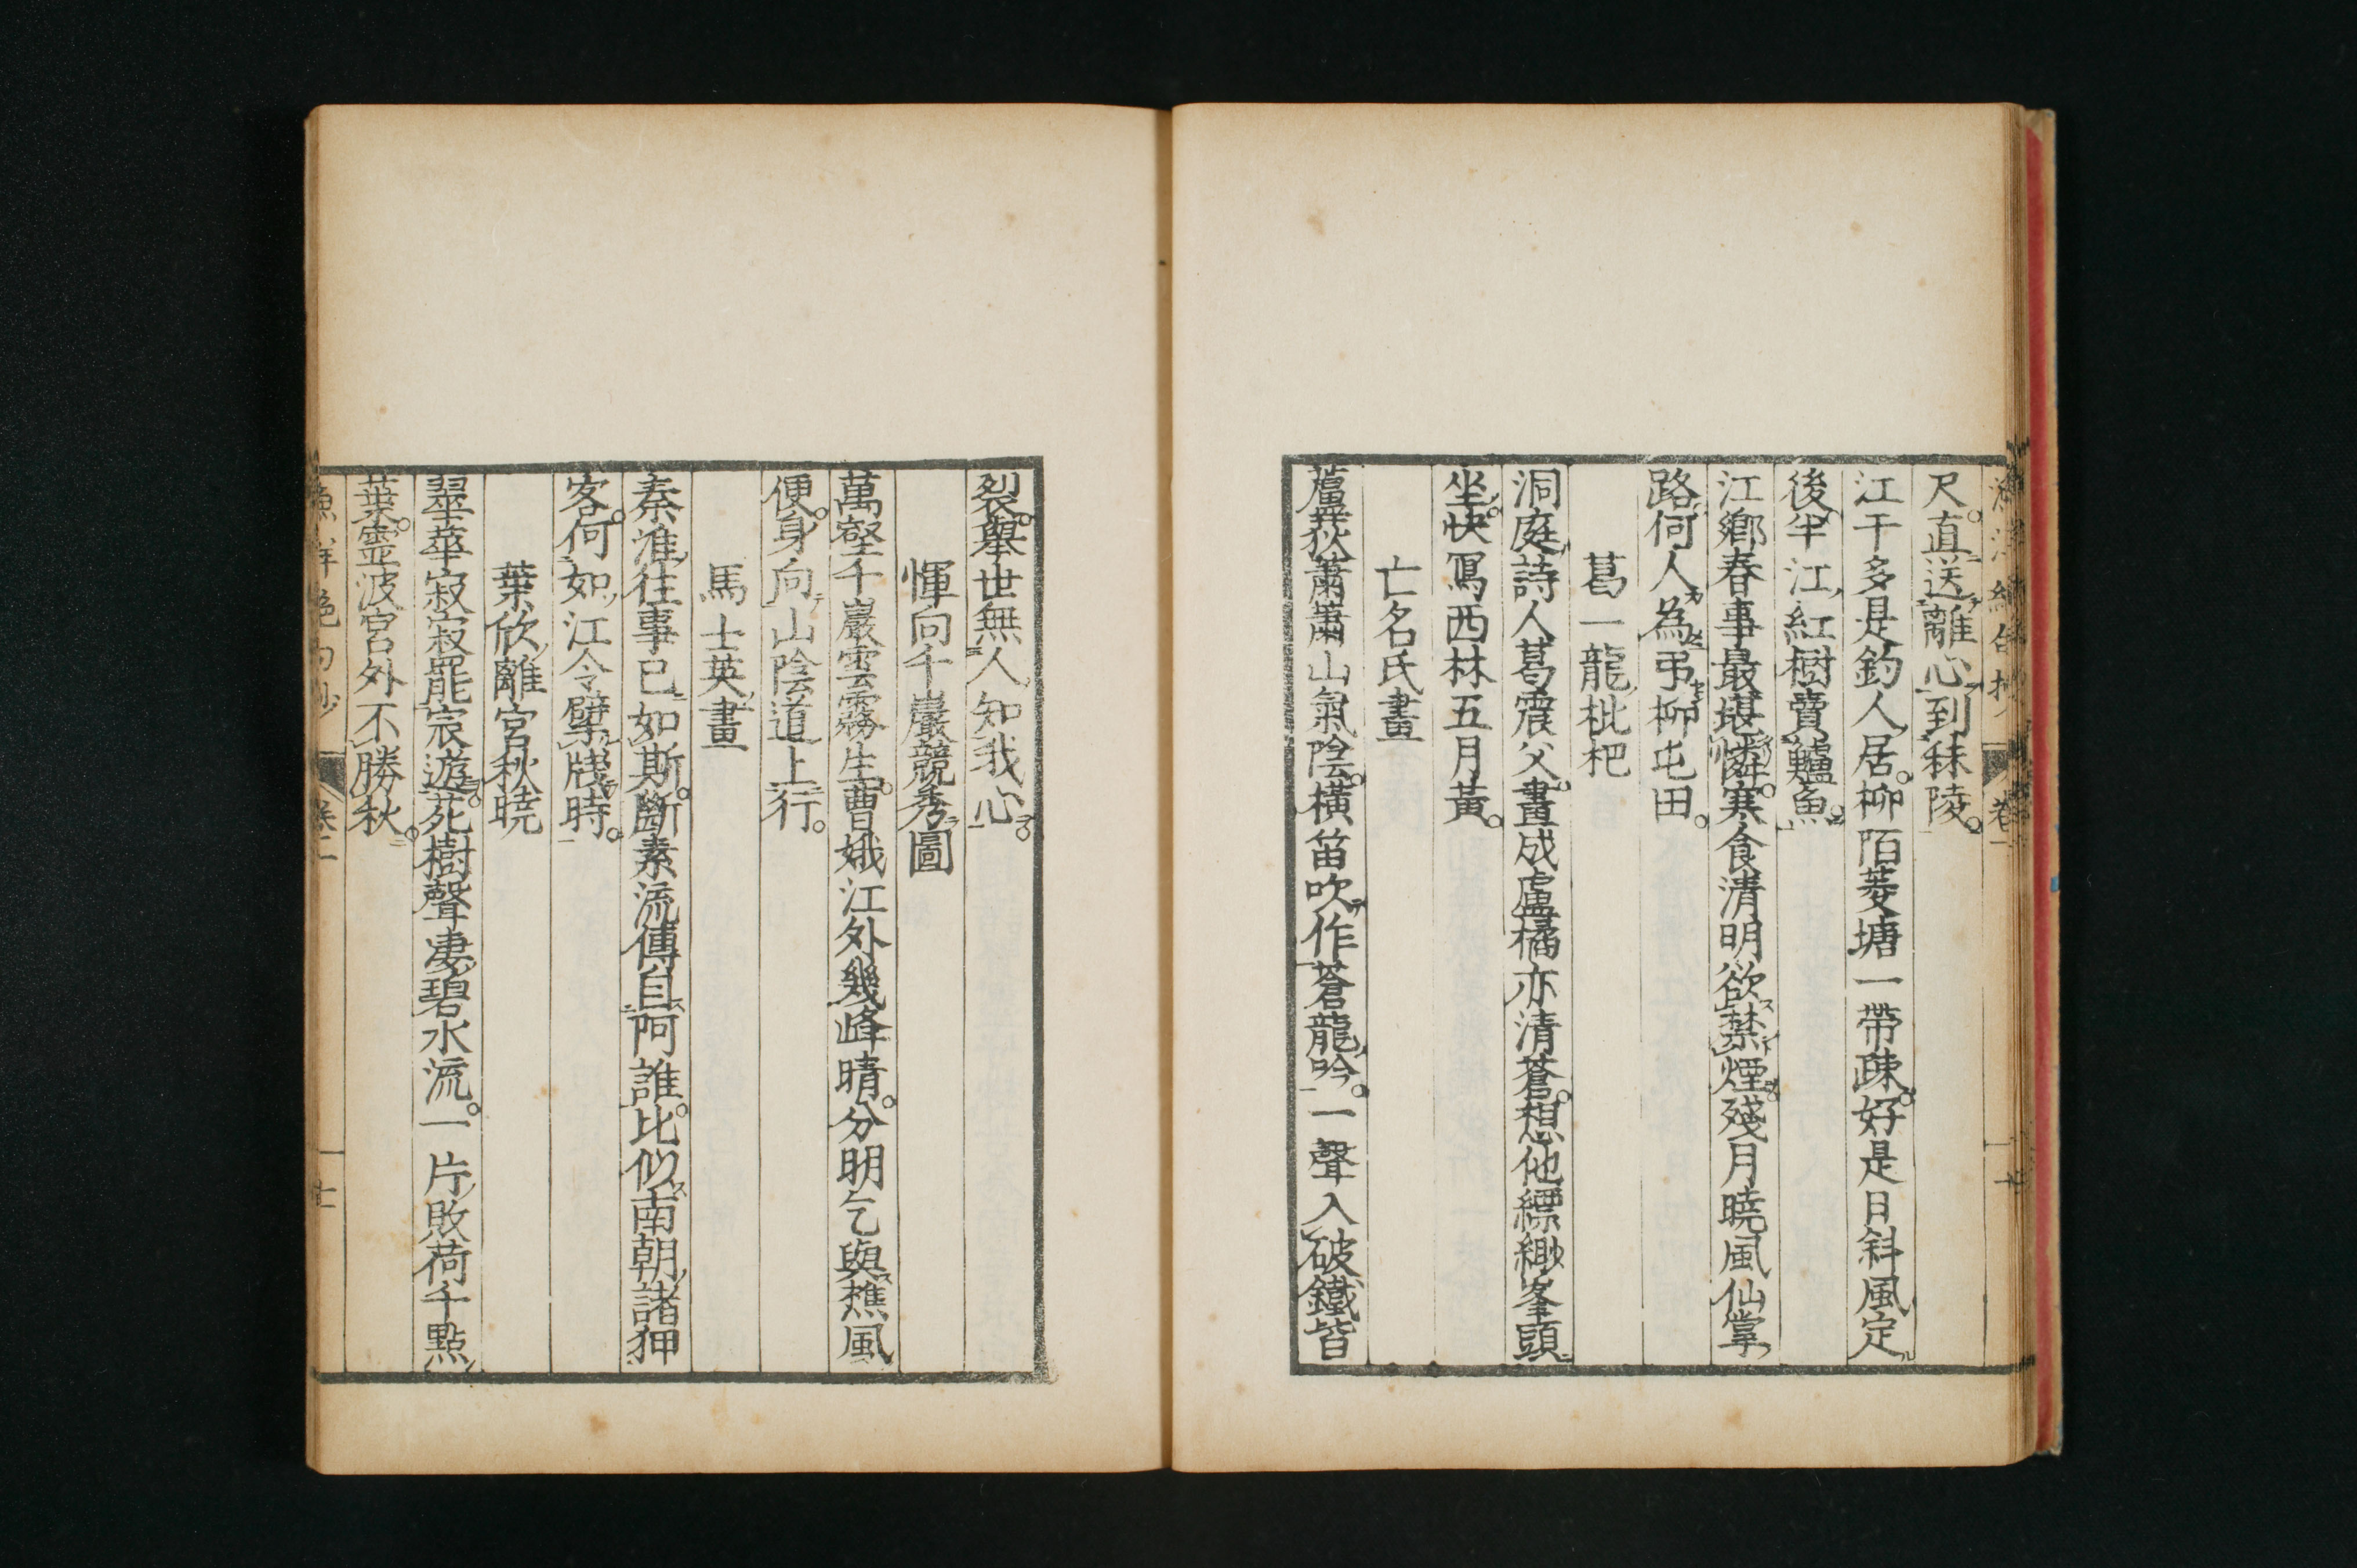 尺。直送離心到秣陵。
江干多是釣人居。柳陌菱塘一帶疎。好是日斜風定
後半江紅樹賣鱸魚。
江鄉春事最堪憐。寒食清明欲禁煙。殘月曉風仙掌
路何人為弔柳屯田。
葛一龍枇杷
洞庭詩人葛震父。畫成盧橘亦清蒼。想他縹緲峯頭
坐。快寫西林五月黃。
亡名氏畫
蘆荻蕭蕭山氣陰。橫笛吹作蒼龍吟。一聲入破鐵皆
裂。舉世無人知我心。
惲向千巖競秀圖
萬壑千巖雲霧生。曹娥江外幾峰晴。分明乞與樵風
便。身向山陰道上行。
馬士英畫
秦淮往事已如斯。斷素流傳自阿誰。比似南朝諸狎
客。何如江令擘牋時。
葉欣離宮秋曉
翠華寂寂罷宸遊。苑樹聲凄碧水流。一片敗荷千點
葉。靈波宮外不勝秋。
漁洋絕句抄
卷二